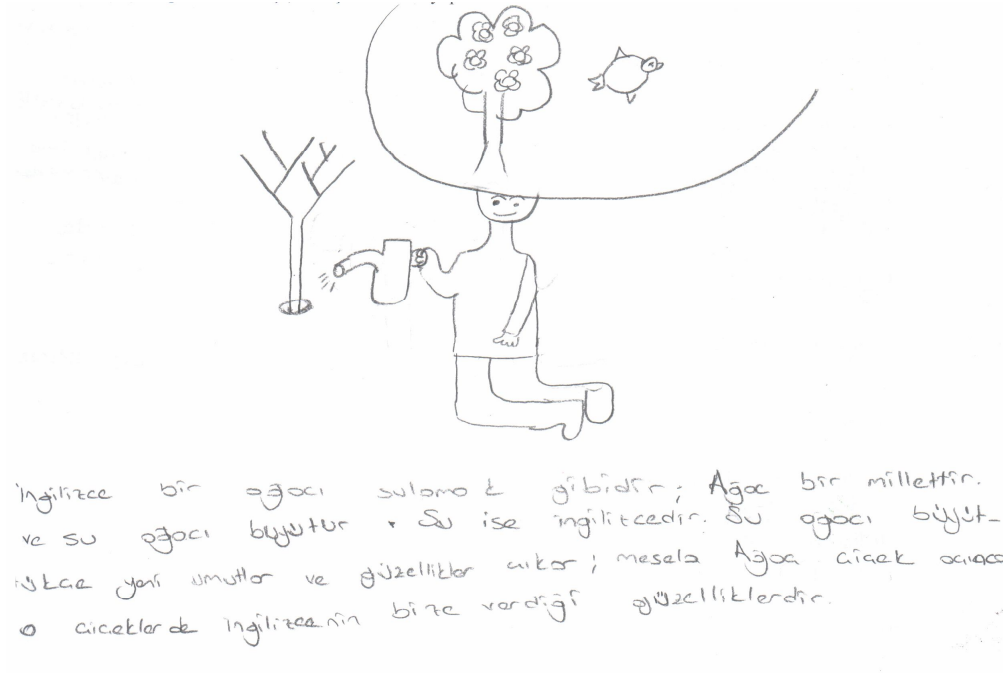 ingilizce bir ağacı sulamak gibidir; Ağaç bir millettir.
ve su ağacı büyütür. Su ise ingilizcedir. Su ağacı büyüt-
tükçe yeni umutlar ve güzellikler çıkar; mesela Ağaç çiçek açınca
o çiçekler de ingilizcenin bize verdiği güzelliklerdir.